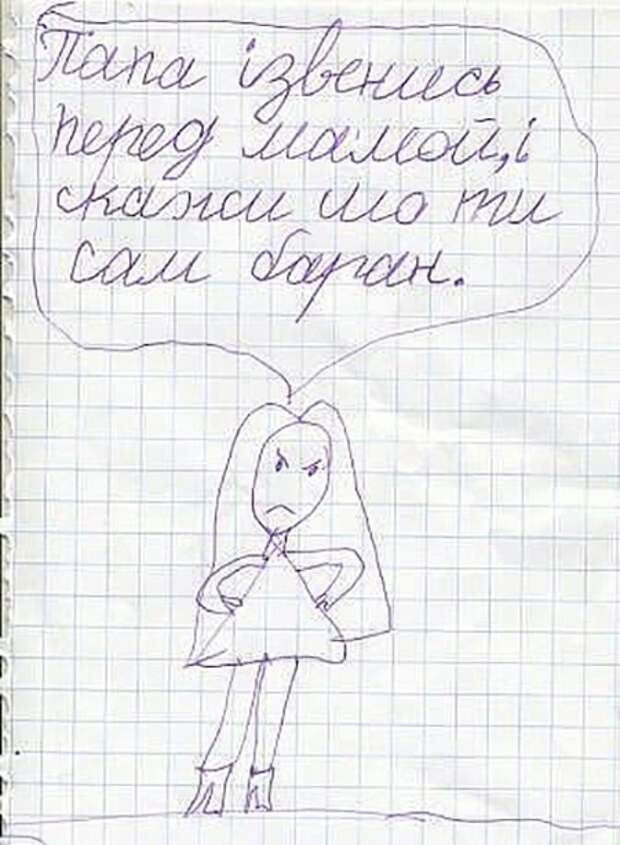 Папа ізвенись
перед мамой, і
скажи шо ти
сам баран.